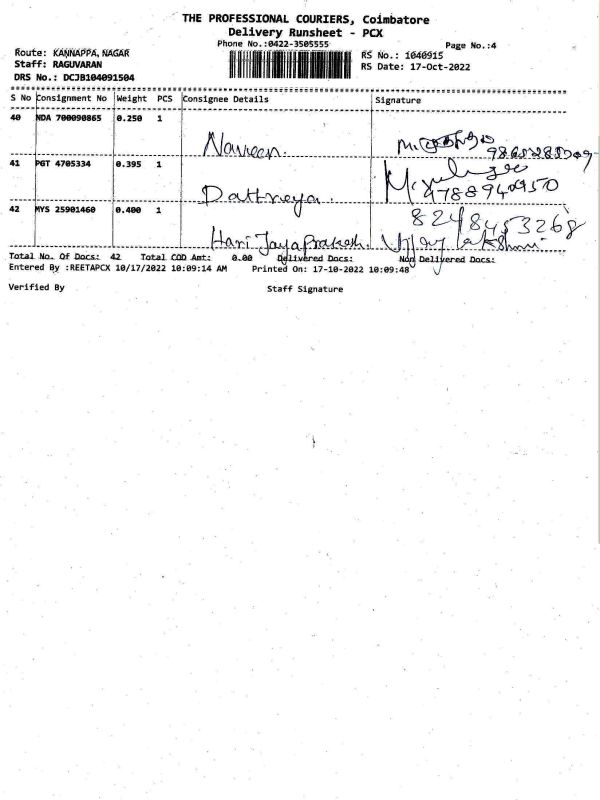 THE PROFESSIONAL COURIERS, Coimbatore
Delivery Runsheet - PCX
Phone No.:0422-3505555
Page No.:4
Route: KANNAPPA, NAGAR
RS No.: 1040915
Staff: RAGUVARAN
RS Date: 17-Oct-2022
DRS No.: DCJB104091504
S No Consignment No Weight PCS Consignee Details Signature
40 NDA 700090865 0.250 1
Naveen.
41 PGT 4705334 0.395 1
Dattreya.
9788940950
42 MYS 25901460 0.400 1
8248453268
Hari Jayaprakash. Vijay lakshmi
Total No. Of Docs: 42 Total COD Amt: 0.00 Delivered Docs: Non Delivered Docs:
Entered By :REETAPCX 10/17/2022 10:09:14 AM Printed On: 17-10-2022 10:09:48
Verified By Staff Signature